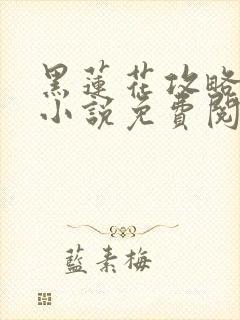 黑蓮花攻略
小說免費閱
藍素梅